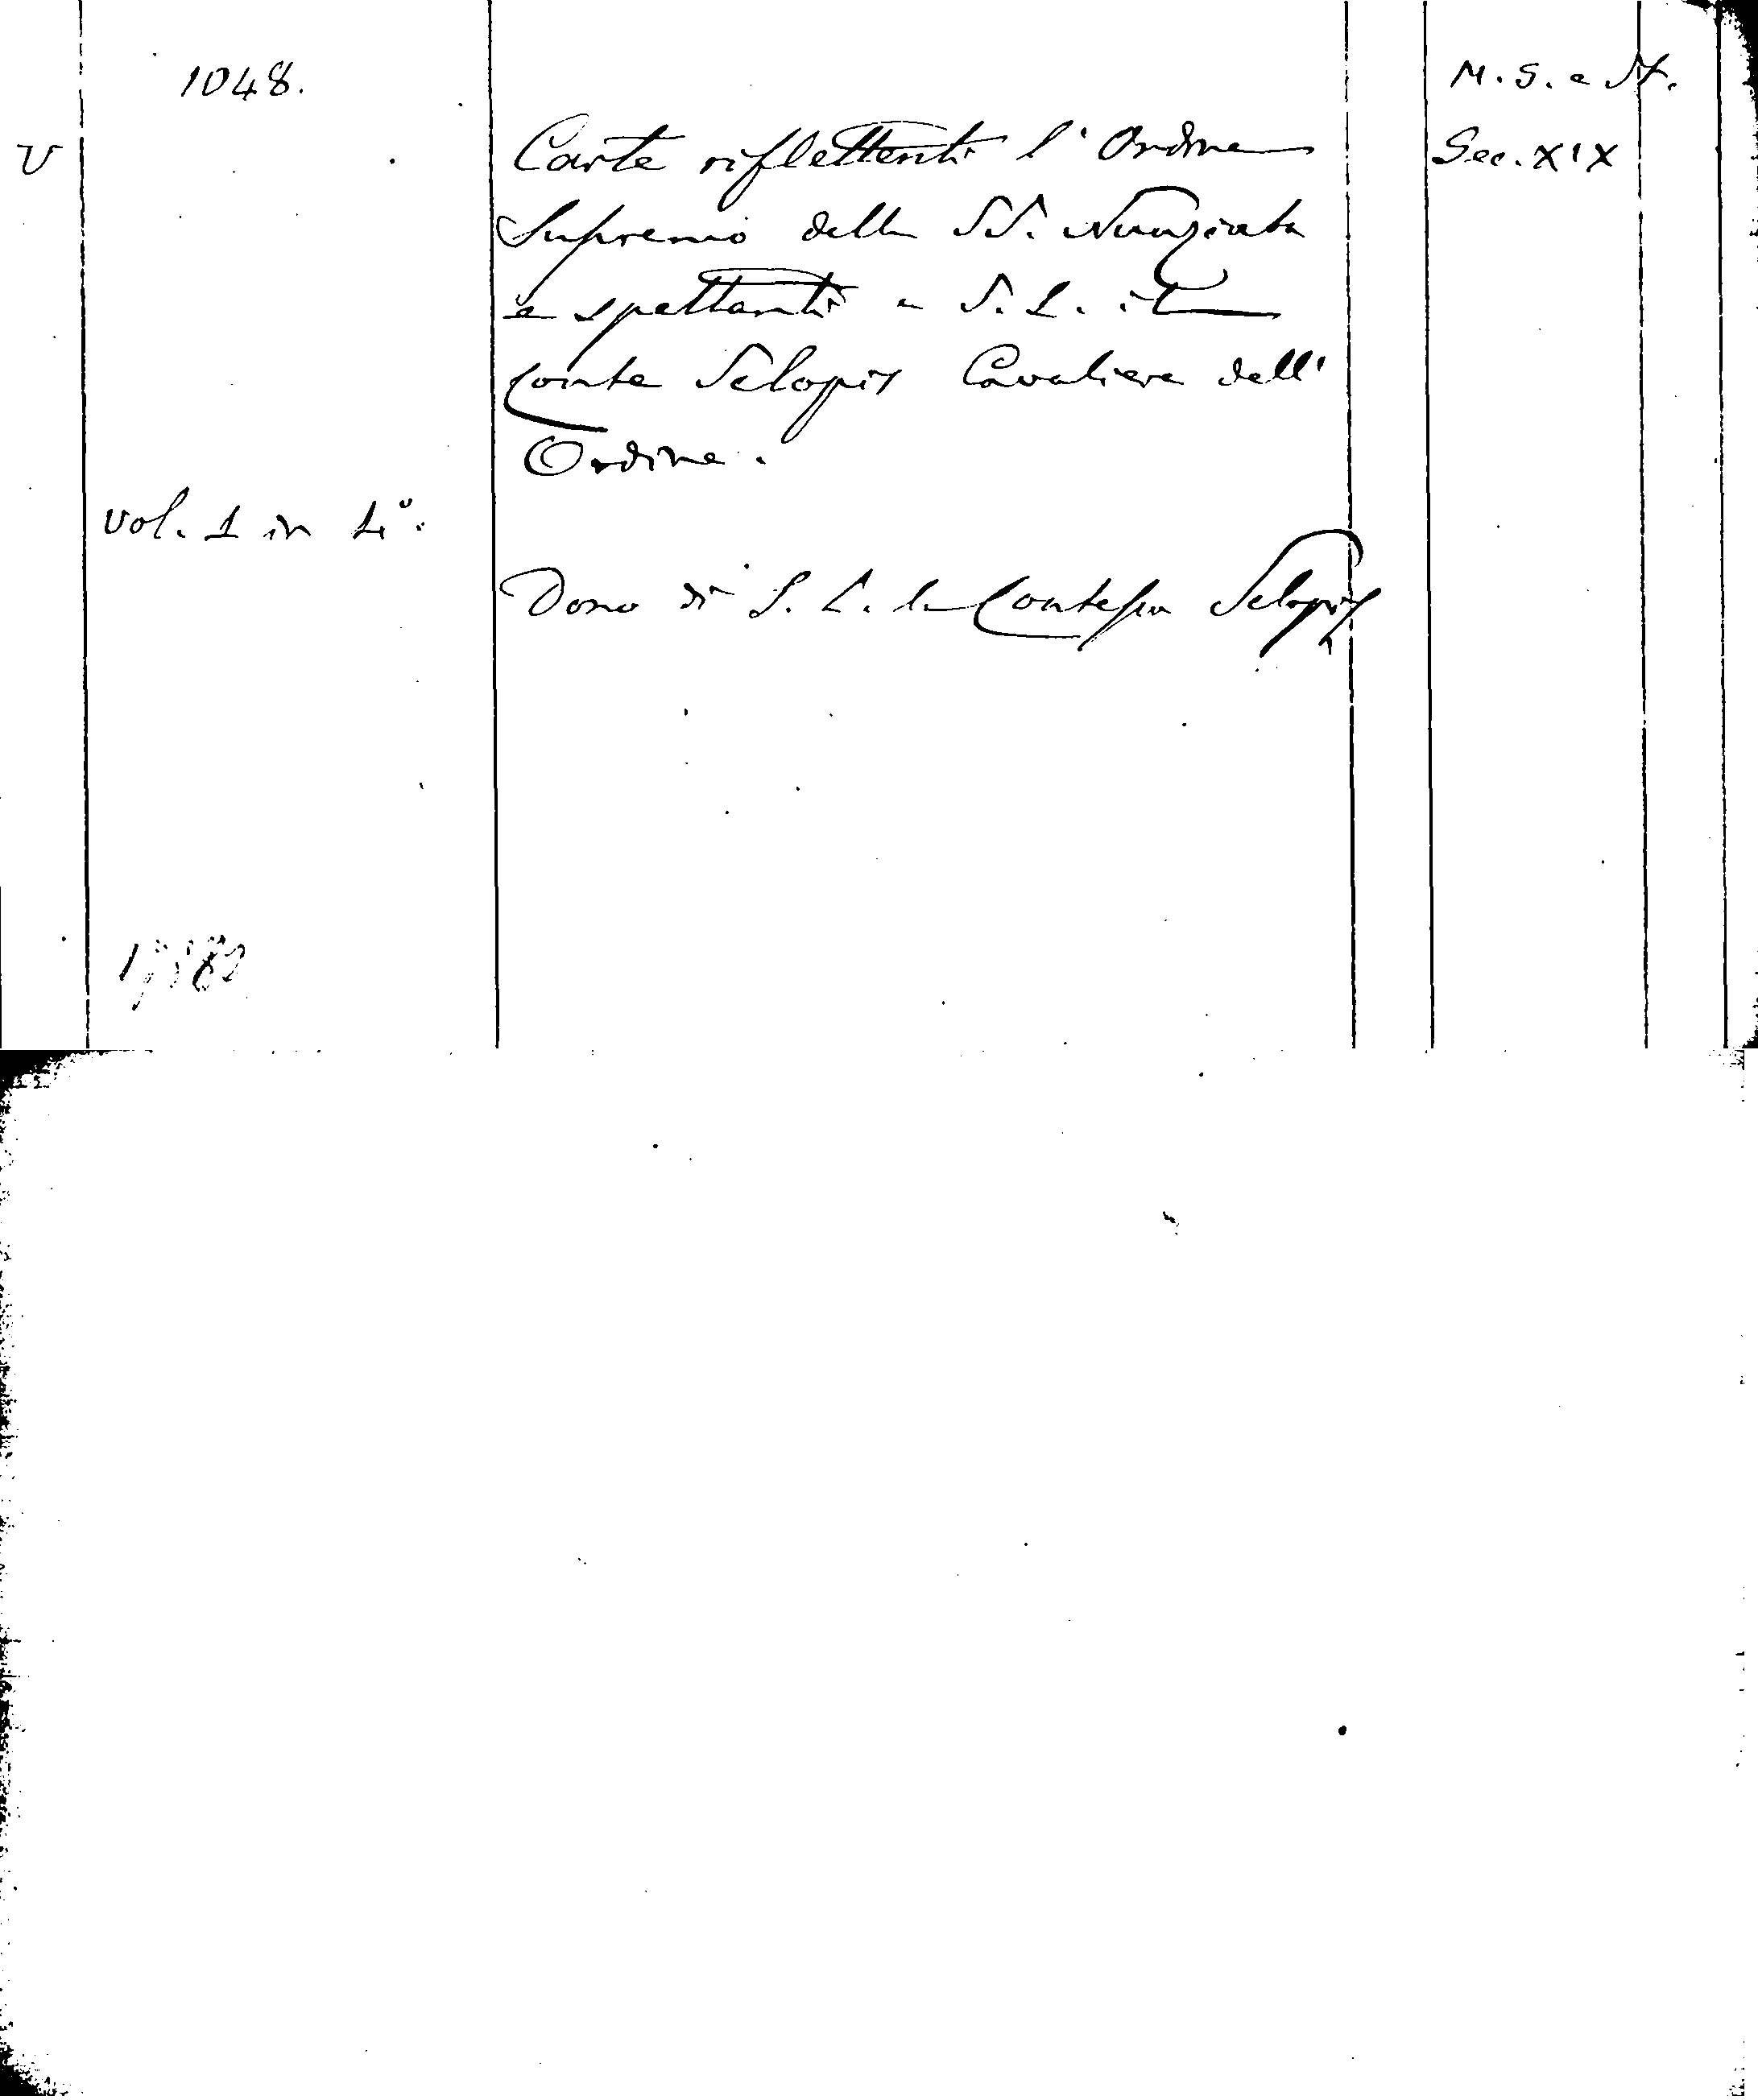 1048.
M. S. e St.
V
Carte riflettenti l' Ordine
Sec. XIX
Supremo della SS. Nunziata
e spettanti a S. E. il
Conte Sclopis Cavaliere dell'
Ordine.
vol. 1 in 4°.
Dono di S. E. la Contessa Sclopis